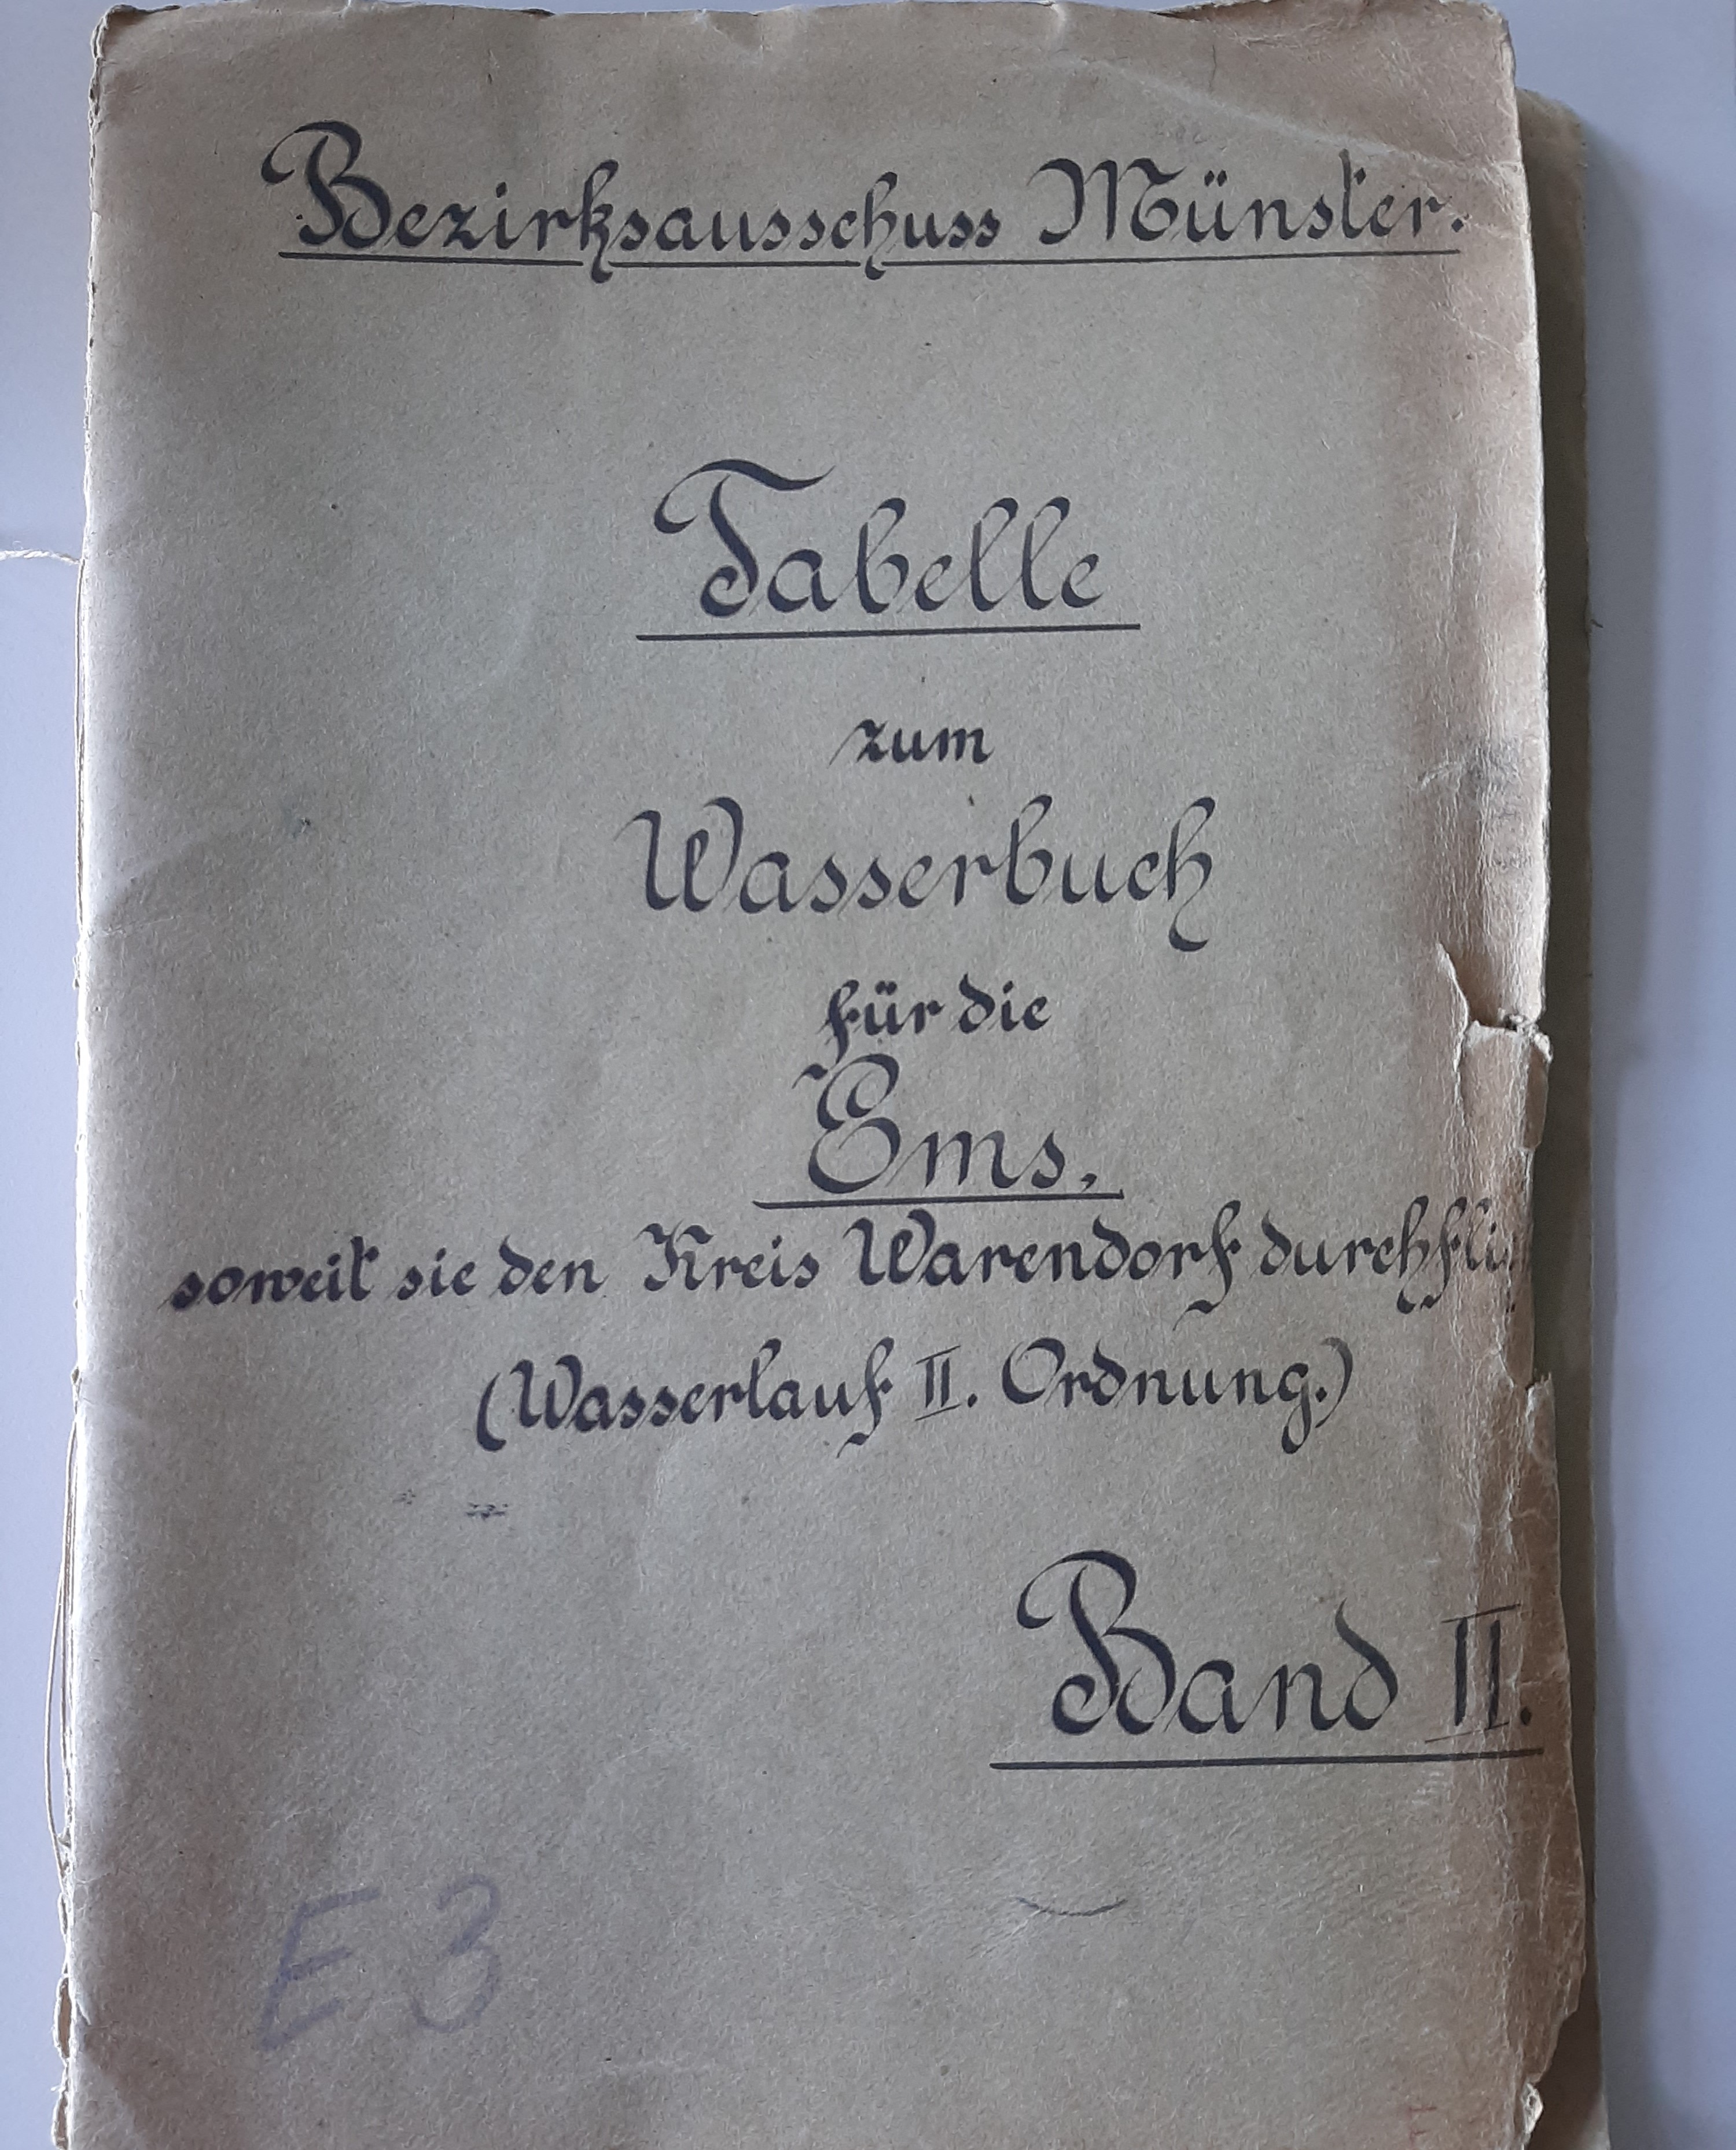 Bezirksausschuss Münster.
Tabelle
zum
Wasserbuch
für die
Ems.
soweit sie den Kreis Warendorf
(Wasserlauf II. Ordnung.)
Band II.
E 3